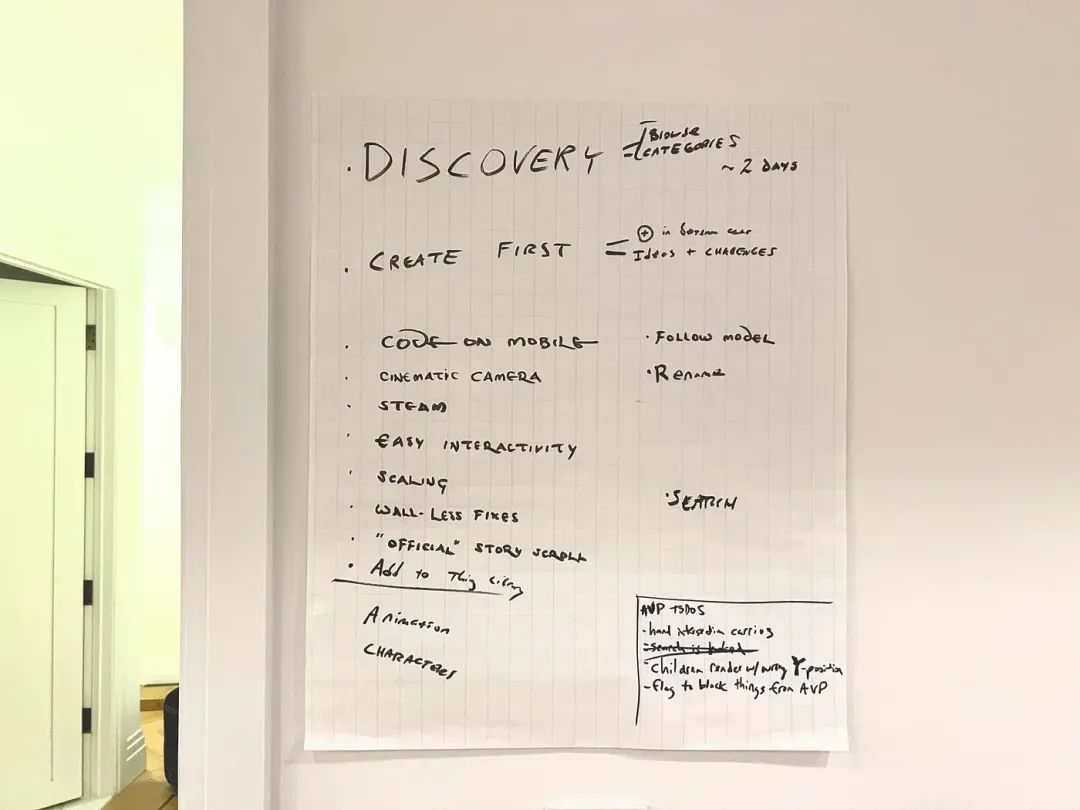 · DISCOVERY
- BROWSE
- CATEGORIES
~ 2 DAYS
· CREATE FIRST
- ⊕ in bottom
- Ideas + CHALLENGES
· CODE ON MOBILE
· CINEMATIC CAMERA
· STEAM
· EASY INTERACTIVITY
· SCALING
· WALL-LESS FIXES
· "OFFICIAL" STORY SCROLL
· Add to Thing
Animation
CHARACTERS
· FOLLOW MODEL
· Rename
· SEARCH
AVP TODOS
- hand interaction
- search is
- Children render w/ wrong Y-position
- flag to block things from AVP